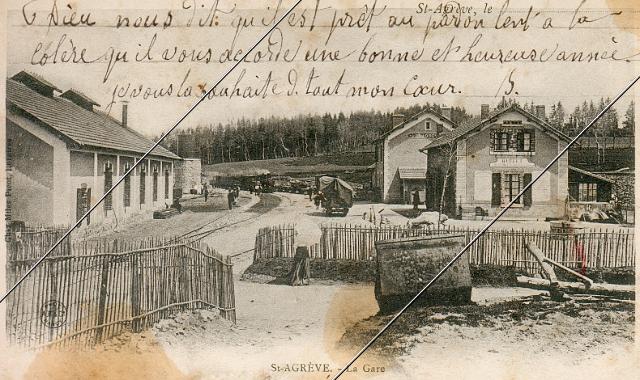 St-Agrève, le
Dieu nous dit qu'il est prêt au pardon lent à la
colère qu'il vous accorde une bonne et heureuse année.
je vous la souhaite d. tout mon cœur. B.
St-AGRÈVE. - La Gare